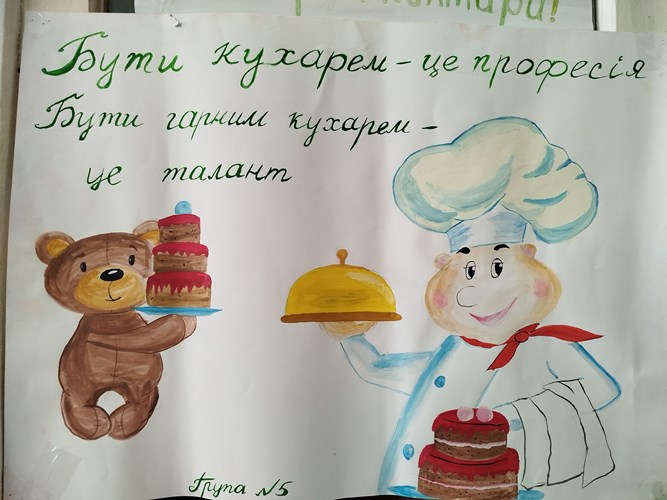 Бути кухарем - це професія
Бути гарним кухарем -
це талант
Група №5